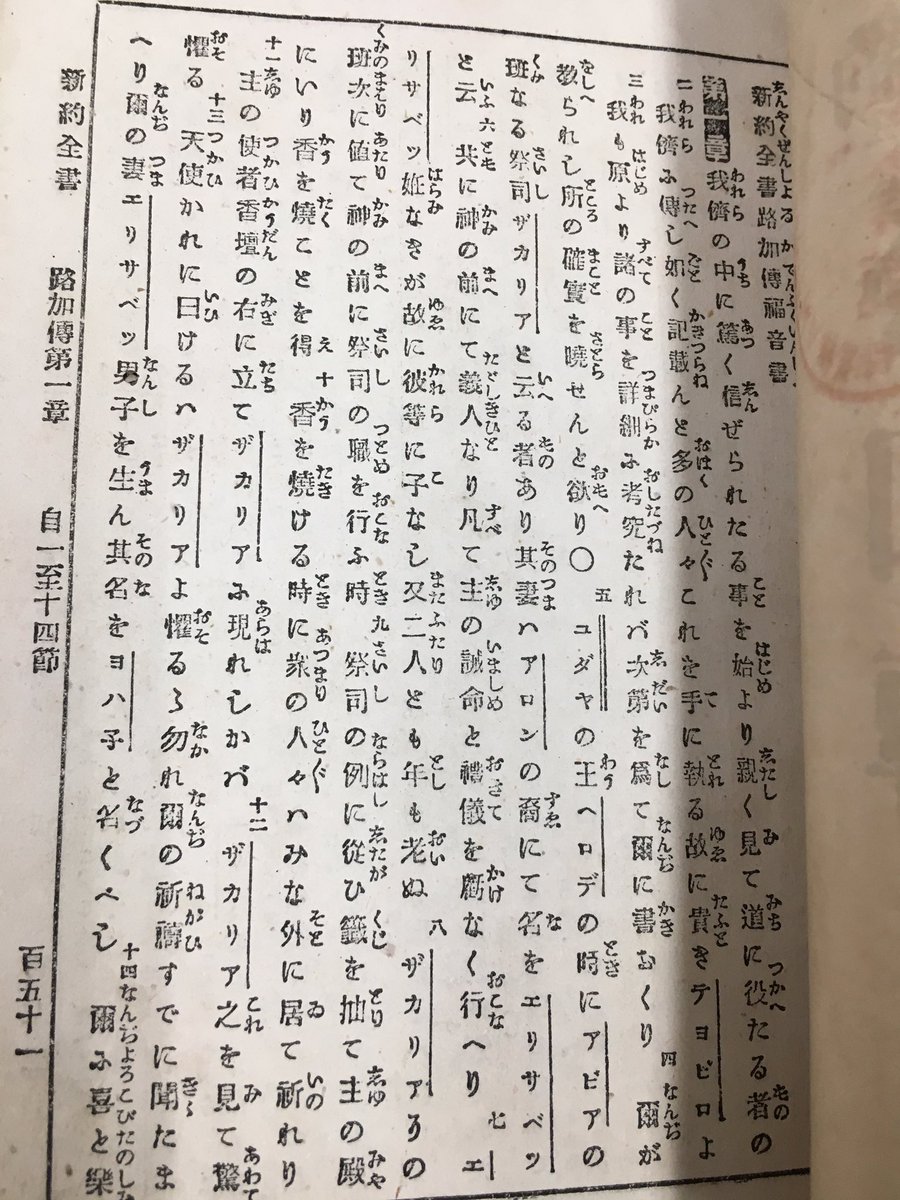 新約全書路加傳福音書
第一章 我儕の中に篤く信ぜられたる事を始より親く見て道に役たる者の
二 我儕ふ傳し如く記載んと多の人々これを手に執る故に貴きテヨピロよ
三 我も原より諸の事を詳細ふ考究たれバ次第を爲て爾に書おくり 四 爾が
敎られし所の確實を曉せんと欲り〇 五 ユダヤの王ヘロデの時にアビアの
班なる祭司ザカリアと云る者あり其妻ハアロンの裔にて名をエリサベツ
と云 六 共に神の前にて義人なり凡て主の誡命と禮儀を虧なく行へり 七 エ
リサベツ姙なきが故に彼等に子なし又二人とも年も老ぬ 八 ザカリアその
班次に値て神の前に祭司の職を行ふ時 九 祭司の例に從ひ籤を抽て主の殿
にいり香を燒ことを得 十 香を燒ける時に衆の人々ハみな外に居て祈れり
十一 主の使者香壇の右に立てザカリアふ現れしかバ 十二 ザカリア之を見て驚
懼る 十三 天使かれに曰けるハザカリアよ懼るゝ勿れ爾の祈禱すでに聞たま
へり爾の妻エリサベツ男子を生ん其名をヨハ子と名くべし 十四 爾ふ喜と樂
新約全書 路加傳第一章 自一至十四節 百五十一